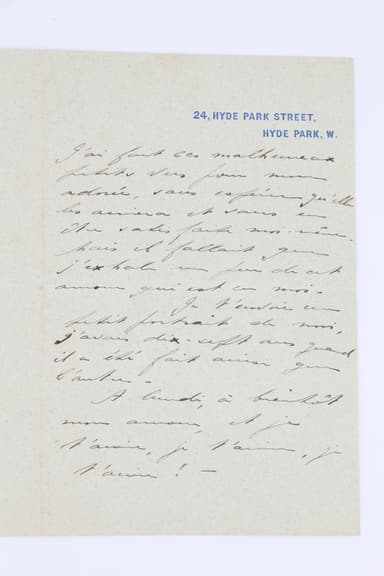 24, HYDE PARK STREET,
HYDE PARK, W.
J'ai fait ces malheureux
petits vers pour mon
adorée, sans espérer qu'elle
les aimera et sans en
être satisfaite moi-même
mais il fallait que
j'exhale un peu de cet
amour qui est en moi.
Je t'envoie un
petit portrait de moi,
j'avais dix-sept ans quand
il a été fait ainsi que
l'autre.
A lundi, à bientôt
mon amour, et je
t'aime, je t'aime, je
t'aime ! —